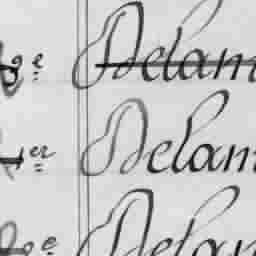 e Delam
er Delam
e Delam